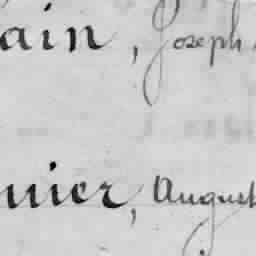 ain, Joseph
nier, August